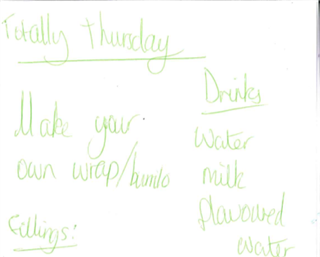 Totally Thursday
Make your
own wrap/burrito
Fillings:
Drinks
Water
milk
flavoured
water